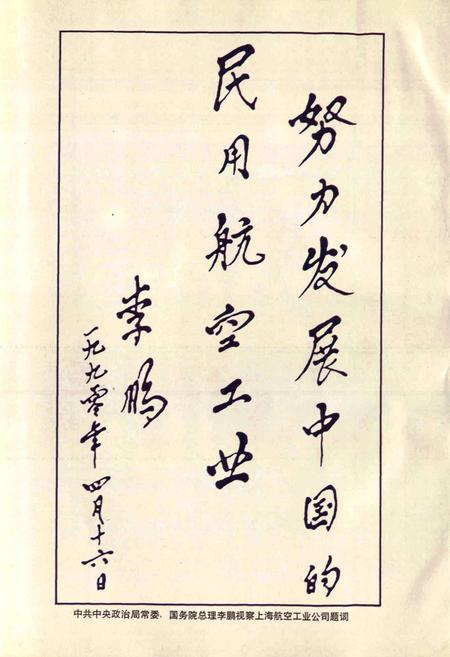 努力发展中国的
民用航空工业
李鹏
一九九零年四月十六日
中共中央政治局常委、国务院总理李鹏视察上海航空工业公司题词